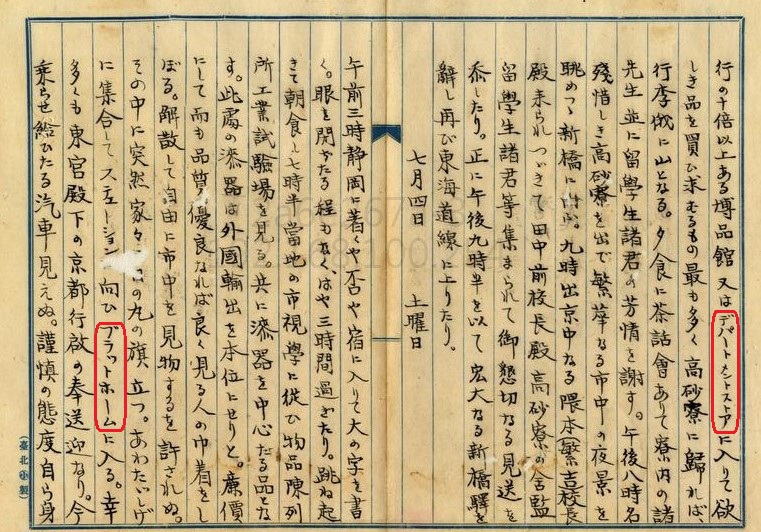 行の十倍以上ある博品館又はデパートメントストアに入りて欲
しき品を買ひ求むるもの最も多く高砂寮に歸れば
行李俄に山となる。夕食に茶話會ありて寮内の諸
先生並に留學生諸君の芳情を謝す。午後八時名
殘惜しき高砂寮を出で繁華なる市中の夜景を
眺めつゝ新橋に向ふ。九時出京中なる隈本(繁吉)校長
殿來られつゞきて田中前校長殿高砂寮の舍監
留學生諸君等集まられて御懇切なる見送を
忝したり。正に午後九時半を以て宏大なる新橋驛を
辭し再び東海道線に上りたり。
七月四日 土曜日
午前三時静岡に着くや否や宿に入りて大の字を書
く。眼を閉ぢたる程もなく、はや三時間過ぎたり。跳ね起
きて朝食し七時半當地の市視學に從ひ物品陳列
所工業試驗場を見る。共に漆器を中心たる品な
す。此處の漆器は外國輸出を本位にせりと。廉價
にして而も品質優良なれば良く見る人の巾着をし
ぼる。解散して自由に市中を見物するを許されぬ。
その中に突然家々に日の丸の旗立つ。あわたゞしげ
に集合してステーションに向ひプラットホームに入る。幸
多くも東宮殿下の京都行啓の奉送迎なり。今
乘らせ給ひたる汽車見えぬ。謹慎の態度自ら身
(臺北 小製)